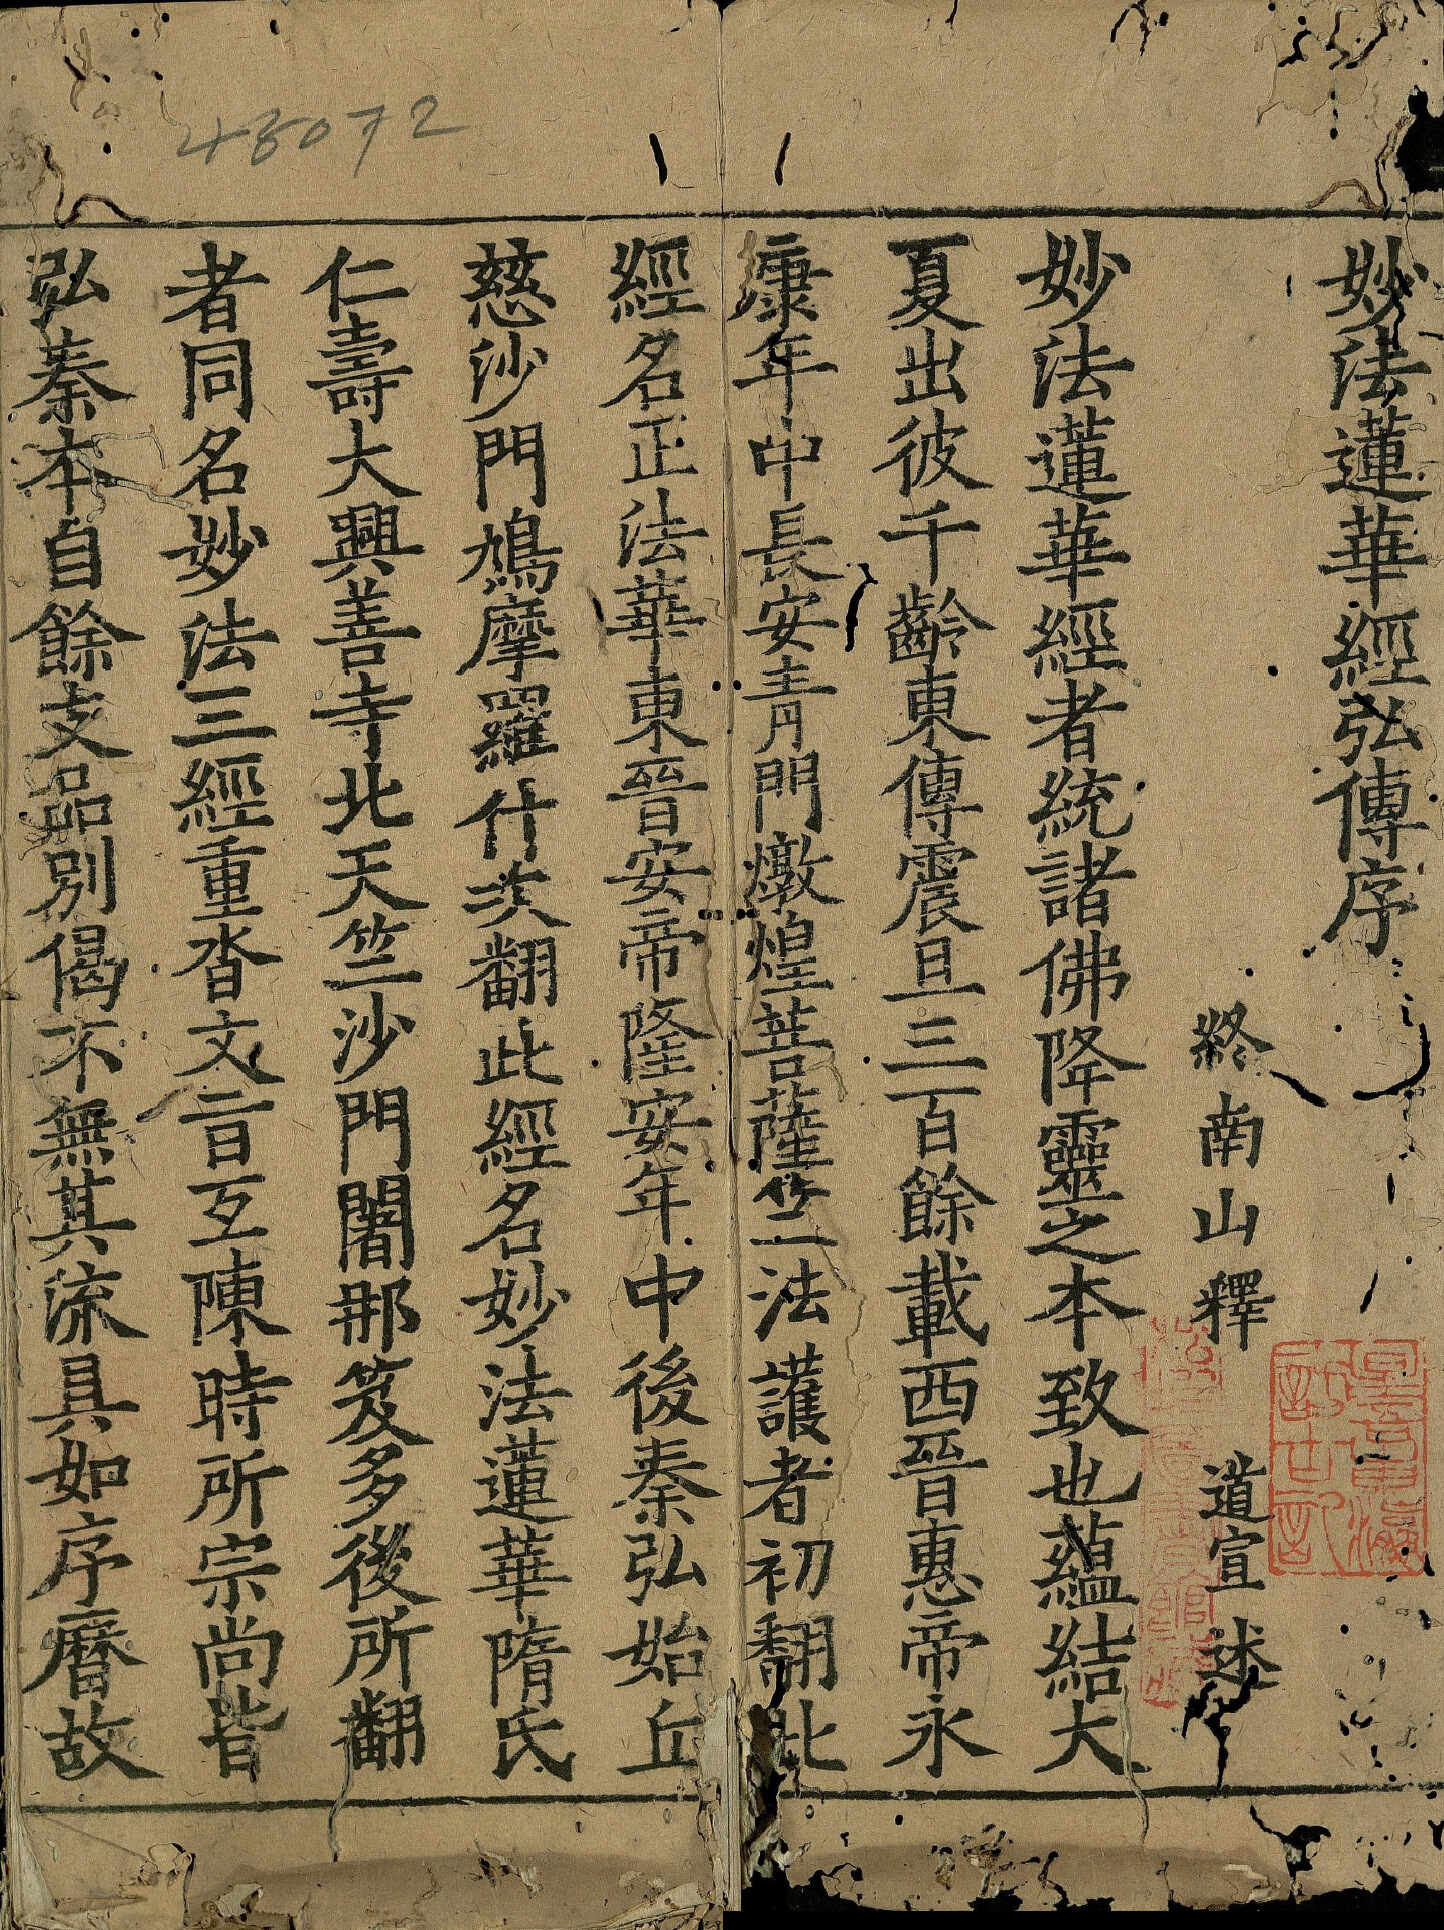 48072
妙法蓮華經弘傳序
終南山釋 道宣 述
妙法蓮華經者統諸佛降靈之本致也蘊結大
夏出彼千齡東傳震旦三百餘載西晉惠帝永
康年中長安青門燉煌菩薩竺法護者初翻此
經名正法華東晉安帝隆安年中後秦弘始丘
慈沙門鳩摩羅什次翻此經名妙法蓮華隋氏
仁壽大興善寺北天竺沙門闍那笈多後所翻
者同名妙法三經重沓文旨互陳時所宗尚皆
弘秦本自餘支品別偈不無其流具如序曆故